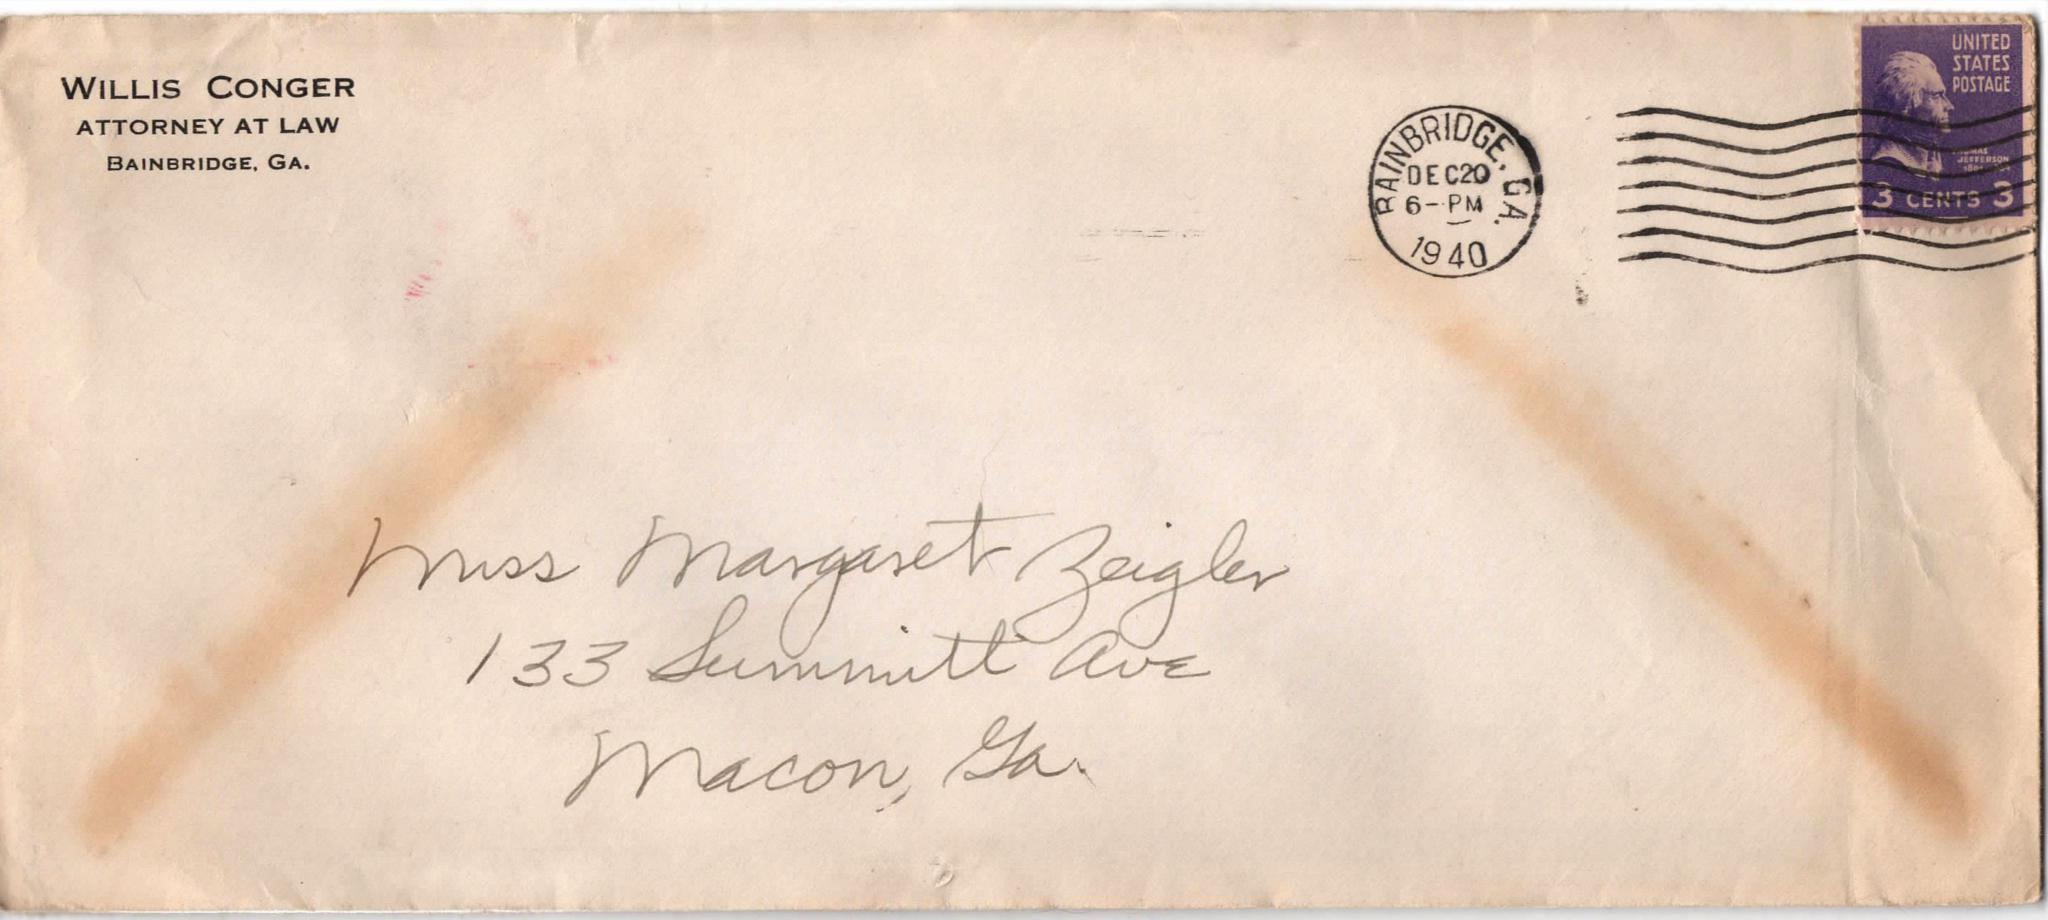 WILLIS CONGER
ATTORNEY AT LAW
BAINBRIDGE, GA.
BAINBRIDGE, GA.
DEC20
6-PM
1940
UNITED
STATES
POSTAGE
THOMAS
JEFFERSON
3 CENTS 3
Miss Margaret Zeigler
133 Summitt Ave
Macon, Ga.